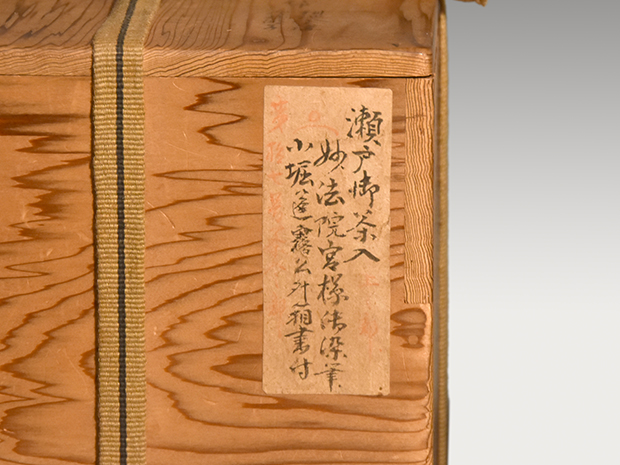 瀬戸御茶入
妙法院宮様御染筆
小堀篷露公外箱書付